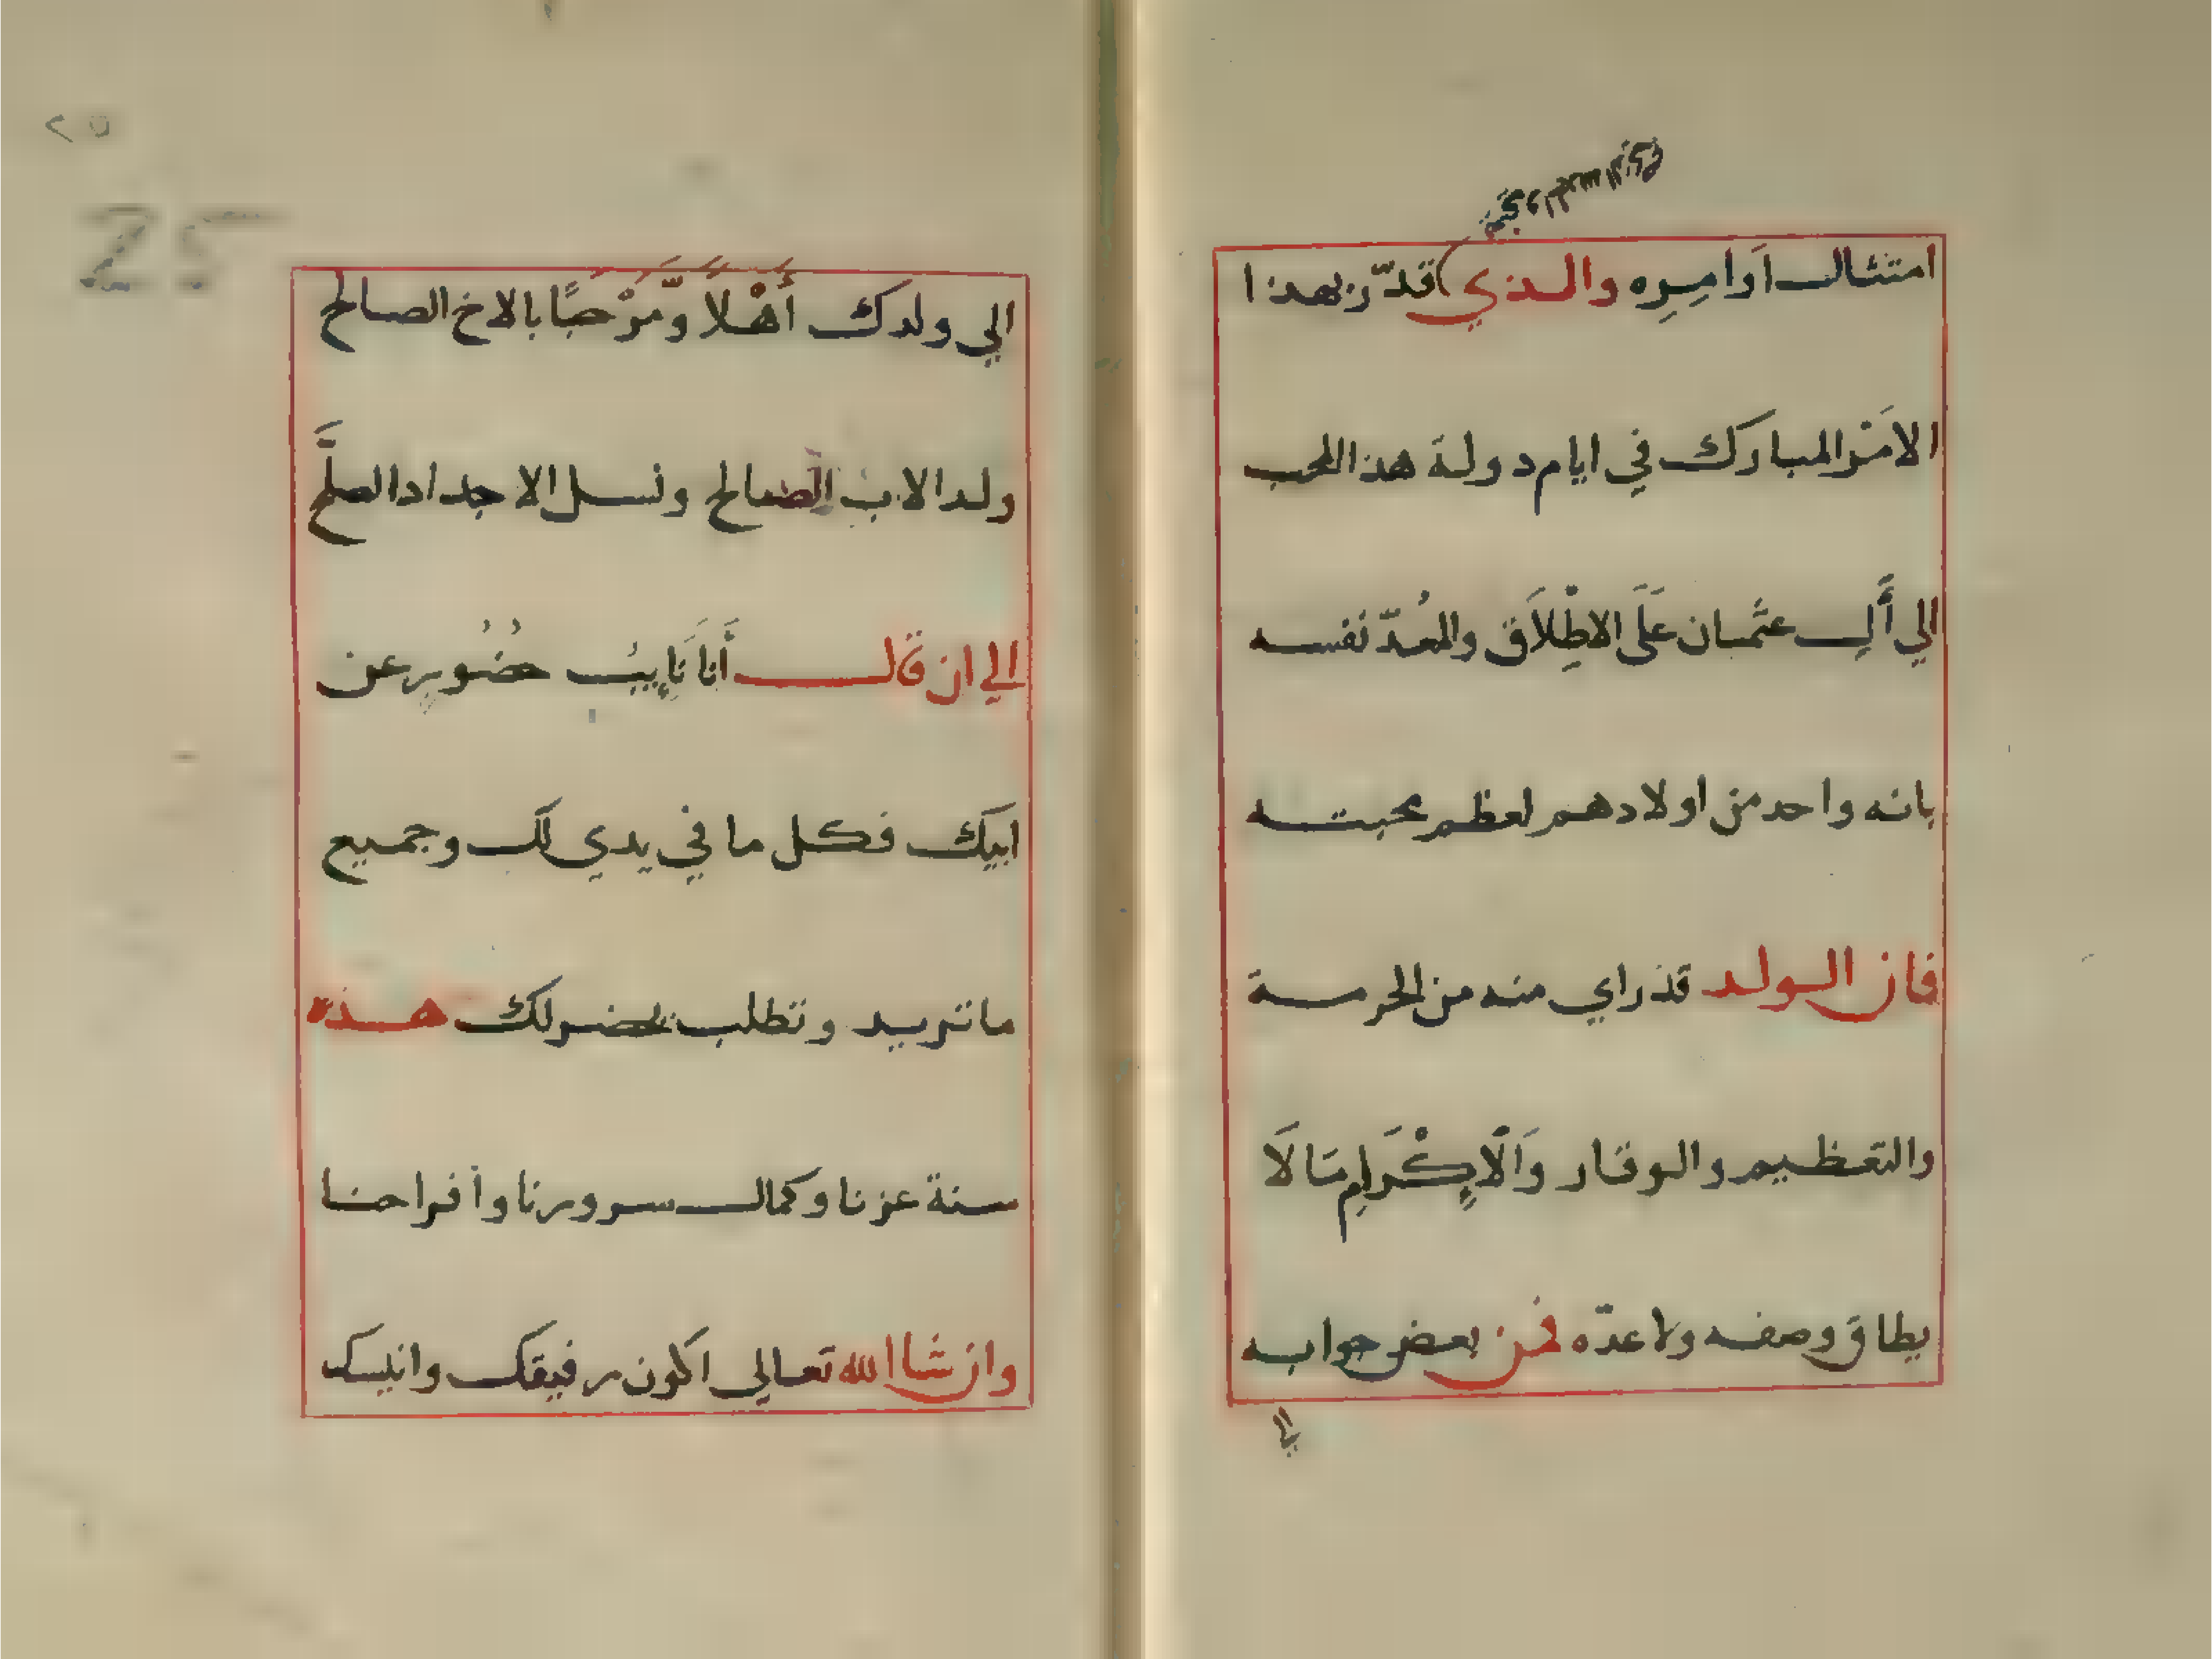 امتثال اَوامِرِه والذي قدّر بهذا
الامَرْ المبارك في ايام دولة هذا المحب
الي أَلِ عثمان عَلَى الاطِلْاَق والمعُدّ نفسه
بانه واحد من اولادهم لعظم محبته
فان الولد قد راي منه من الحرمة
والتعظيم والوقار وَالْاِكْرَامِ مَا لَا
يطاق وصفه ولا عدّه فمن بعض جوابه
الي
٢٥
25
الي ولدك أَهْلاً وَّمَرْحبًا بالاخ الصالح
ولد الاب الصالح ونسل الاجداد الصلَّح
الي ان قال أَنَا نَايِبُ حضُور عن
ابيك فكل ما في يدي لك وجميع
ما تريد وتطلب يحضر لك هذه
سنة عزنا وكمال سرورنا وأفراحنا
وان شا الله تعالي اكون رفيقك وانيسك